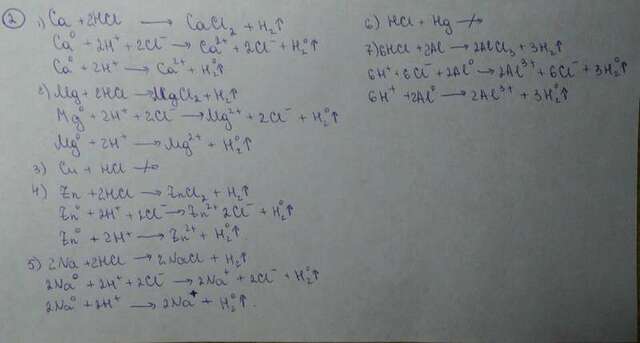 2
1) Ca + 2HCl ⟶ CaCl₂ + H₂↑
Ca⁰ + 2H⁺ + 2Cl⁻ ⟶ Ca²⁺ + 2Cl⁻ + H₂⁰↑
Ca⁰ + 2H⁺ ⟶ Ca²⁺ + H₂⁰↑
2) Mg + 2HCl ⟶ MgCl₂ + H₂↑
Mg⁰ + 2H⁺ + 2Cl⁻ ⟶ Mg²⁺ + 2Cl⁻ + H₂⁰↑
Mg⁰ + 2H⁺ ⟶ Mg²⁺ + H₂⁰↑
3) Cu + HCl ↛
4) Zn + 2HCl ⟶ ZnCl₂ + H₂↑
Zn⁰ + 2H⁺ + 2Cl⁻ ⟶ Zn²⁺ 2Cl⁻ + H₂⁰↑
Zn⁰ + 2H⁺ ⟶ Zn²⁺ + H₂⁰↑
5) 2Na + 2HCl ⟶ 2NaCl + H₂↑
2Na⁰ + 2H⁺ + 2Cl⁻ ⟶ 2Na⁺ + 2Cl⁻ + H₂⁰↑
2Na⁰ + 2H⁺ ⟶ 2Na⁺ + H₂⁰↑.
6) HCl + Hg ↛
7) 6HCl + 2Al ⟶ 2AlCl₃ + 3H₂↑
6H⁺ + 6Cl⁻ + 2Al⁰ ⟶ 2Al³⁺ + 6Cl⁻ + 3H₂⁰↑
6H⁺ + 2Al⁰ ⟶ 2Al³⁺ + 3H₂⁰↑